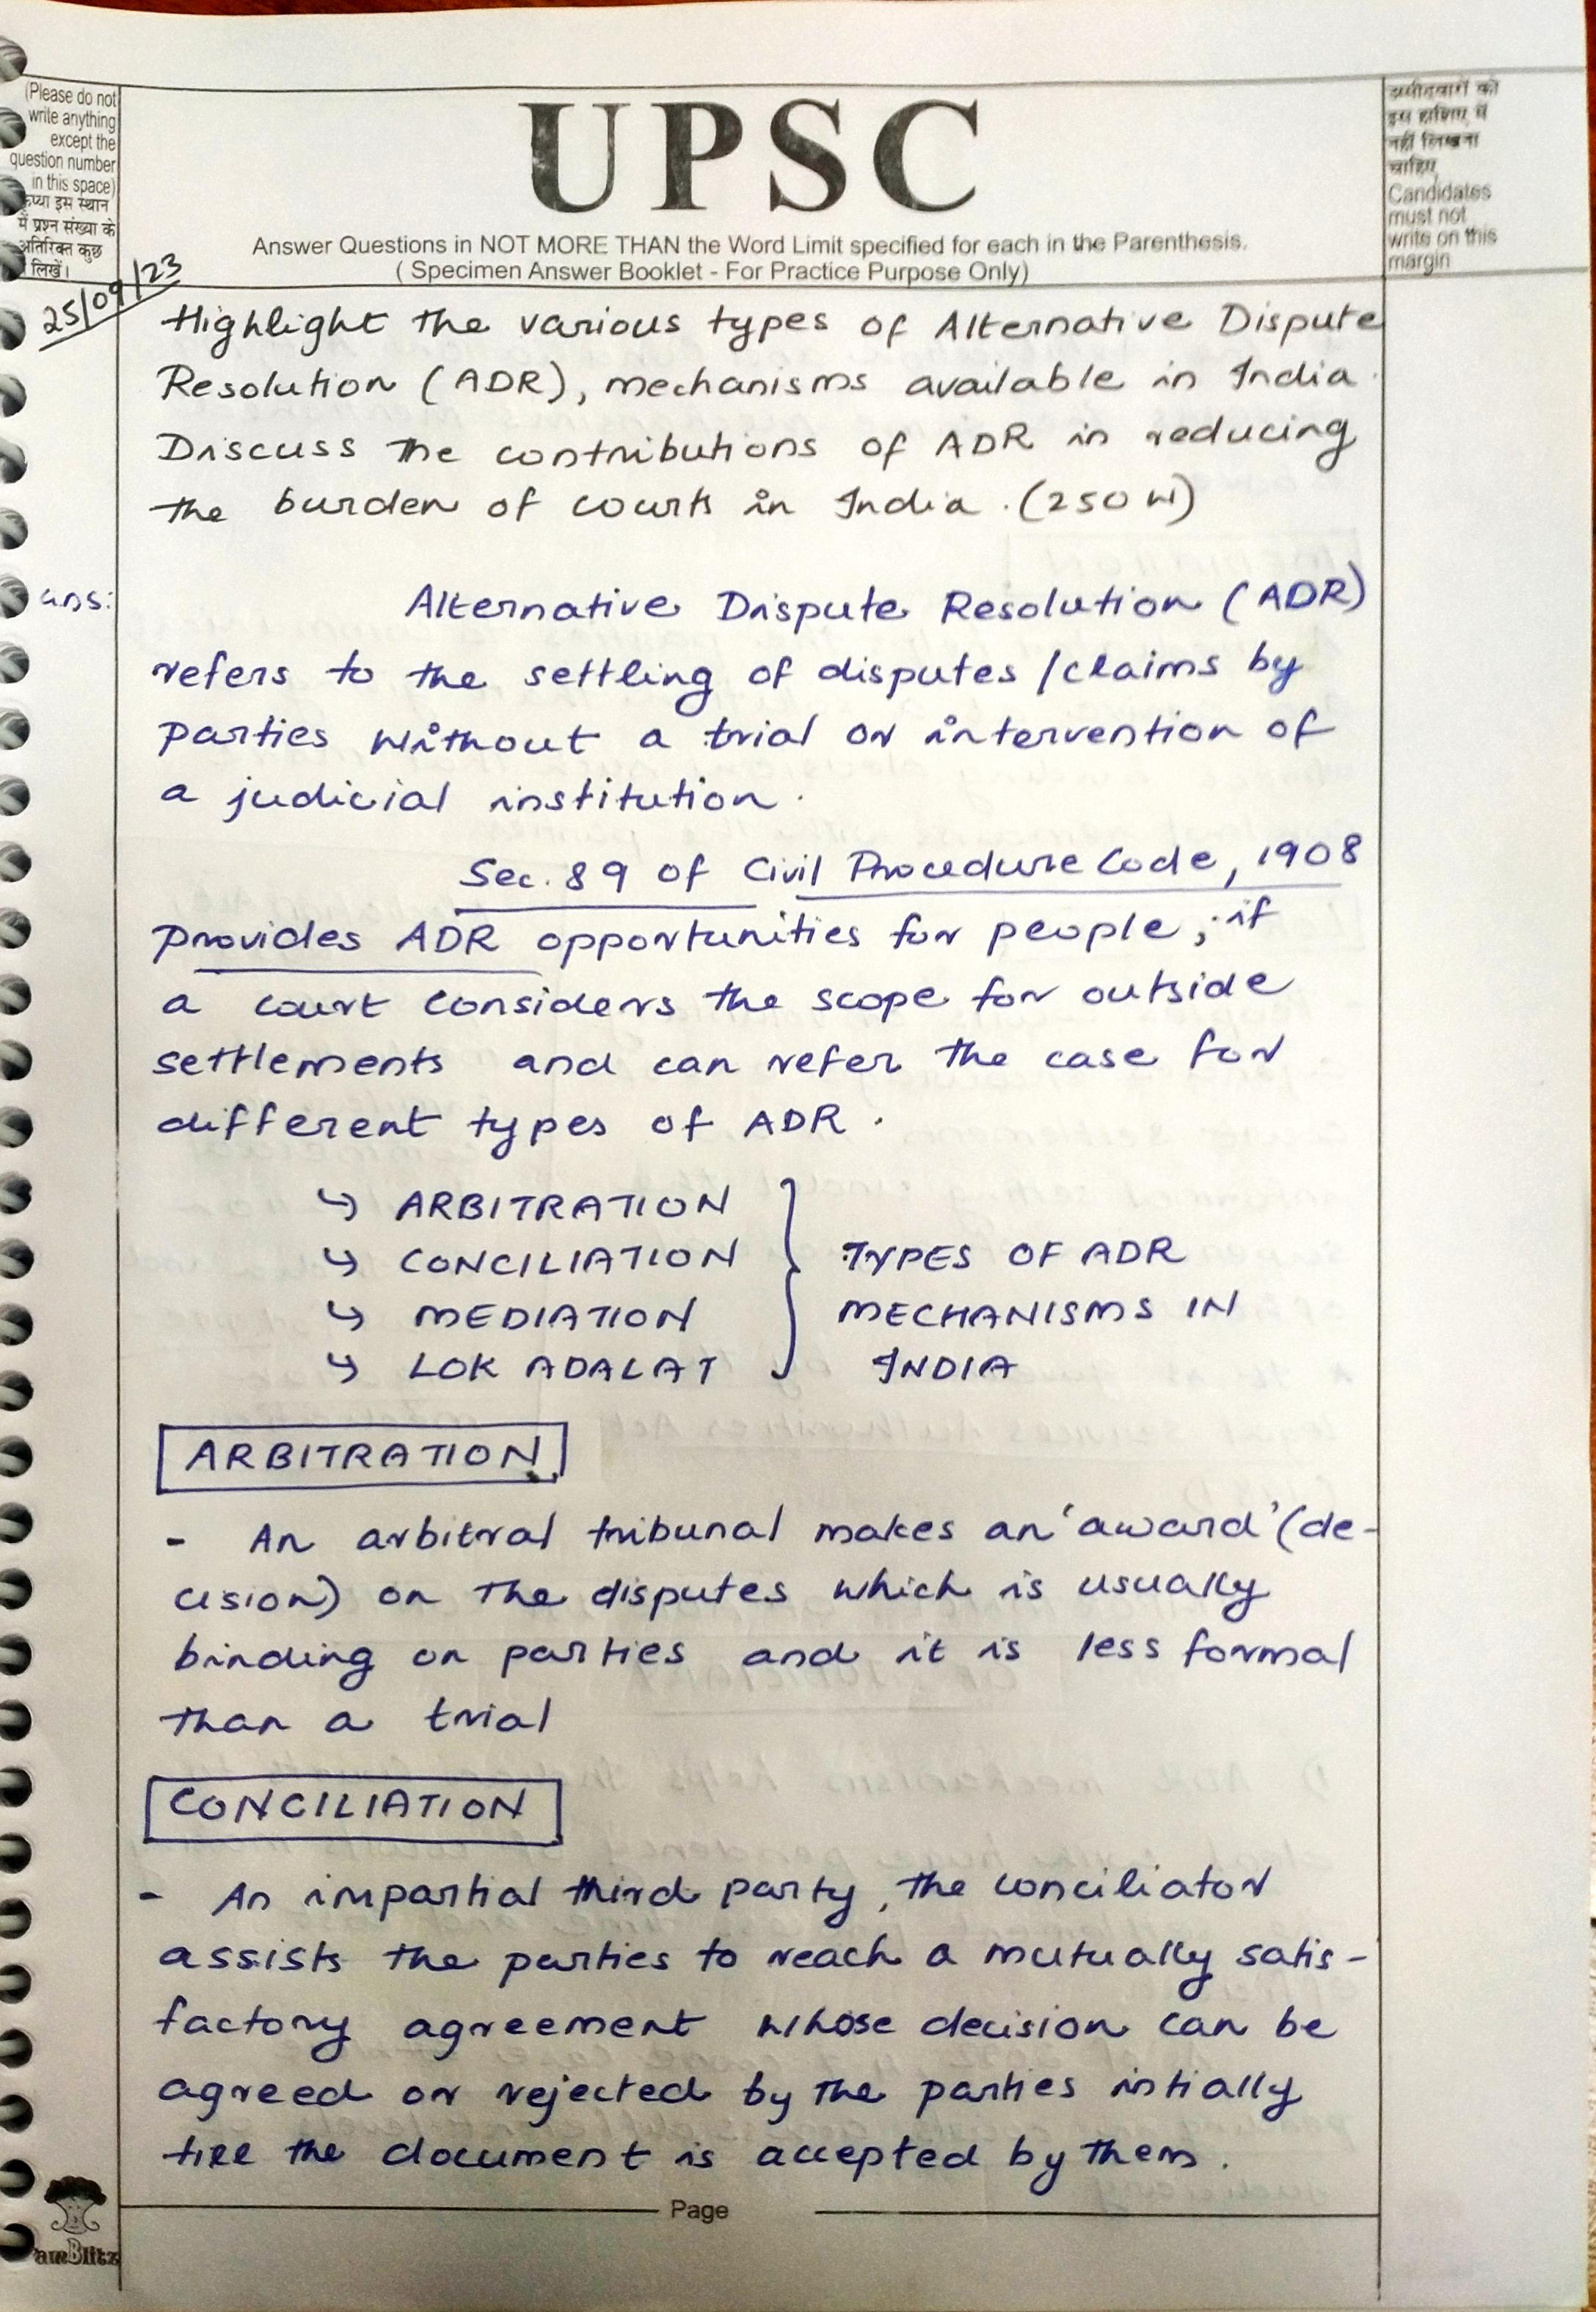 (Please do not
write anything
except the
question number
in this space)
कृप्या इस स्थान
में प्रश्न संख्या के
अतिरिक्त कुछ
लिखें।
UPSC
Answer Questions in NOT MORE THAN the Word Limit specified for each in the Parenthesis.
( Specimen Answer Booklet - For Practice Purpose Only)
उम्मीदवारों को
इस हाशिए में
नहीं लिखना
चाहिए
Candidates
must not
write on this
margin
25/09/23
Highlight the various types of Alternative Dispute
Resolution (ADR), mechanisms available in India.
Discuss the contributions of ADR in reducing
the burden of courts in India. (250 W)
ans:
Alternative Dispute Resolution (ADR)
refers to the settling of disputes /claims by
parties without a trial or intervention of
a judicial institution.
Sec. 89 of Civil Procedure Code, 1908
provides ADR opportunities for people, if
a court considers the scope for outside
settlements and can refer the case for
different types of ADR.
↳ ARBITRATION
↳ CONCILIATION
↳ MEDIATION
↳ LOK ADALAT
TYPES OF ADR
MECHANISMS IN
INDIA
ARBITRATION
- An arbitral tribunal makes an 'award' (de-
cision) on the disputes which is usually
binding on parties and it is less formal
than a trial
CONCILIATION
- An impartial third party, the conciliator
assists the parties to reach a mutually satis-
factory agreement whose decision can be
agreed or rejected by the parties intially
till the document is accepted by them.
Page
amBlitz